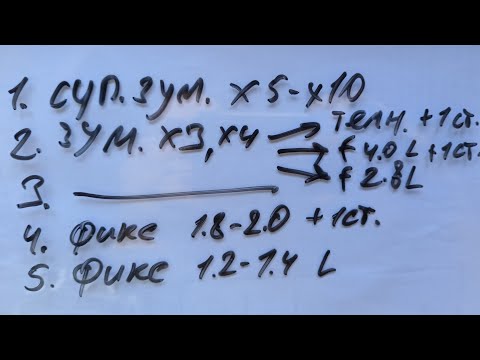 1. СУП. ЗУМ. х5-х10
2. ЗУМ. х3, х4 → телн. +1ст.
→ f 4.0 L +1ст.
→ f 2.8 L
3. ————→
4. фикс 1.8-2.0 +1ст.
5. фикс 1.2-1.4 L